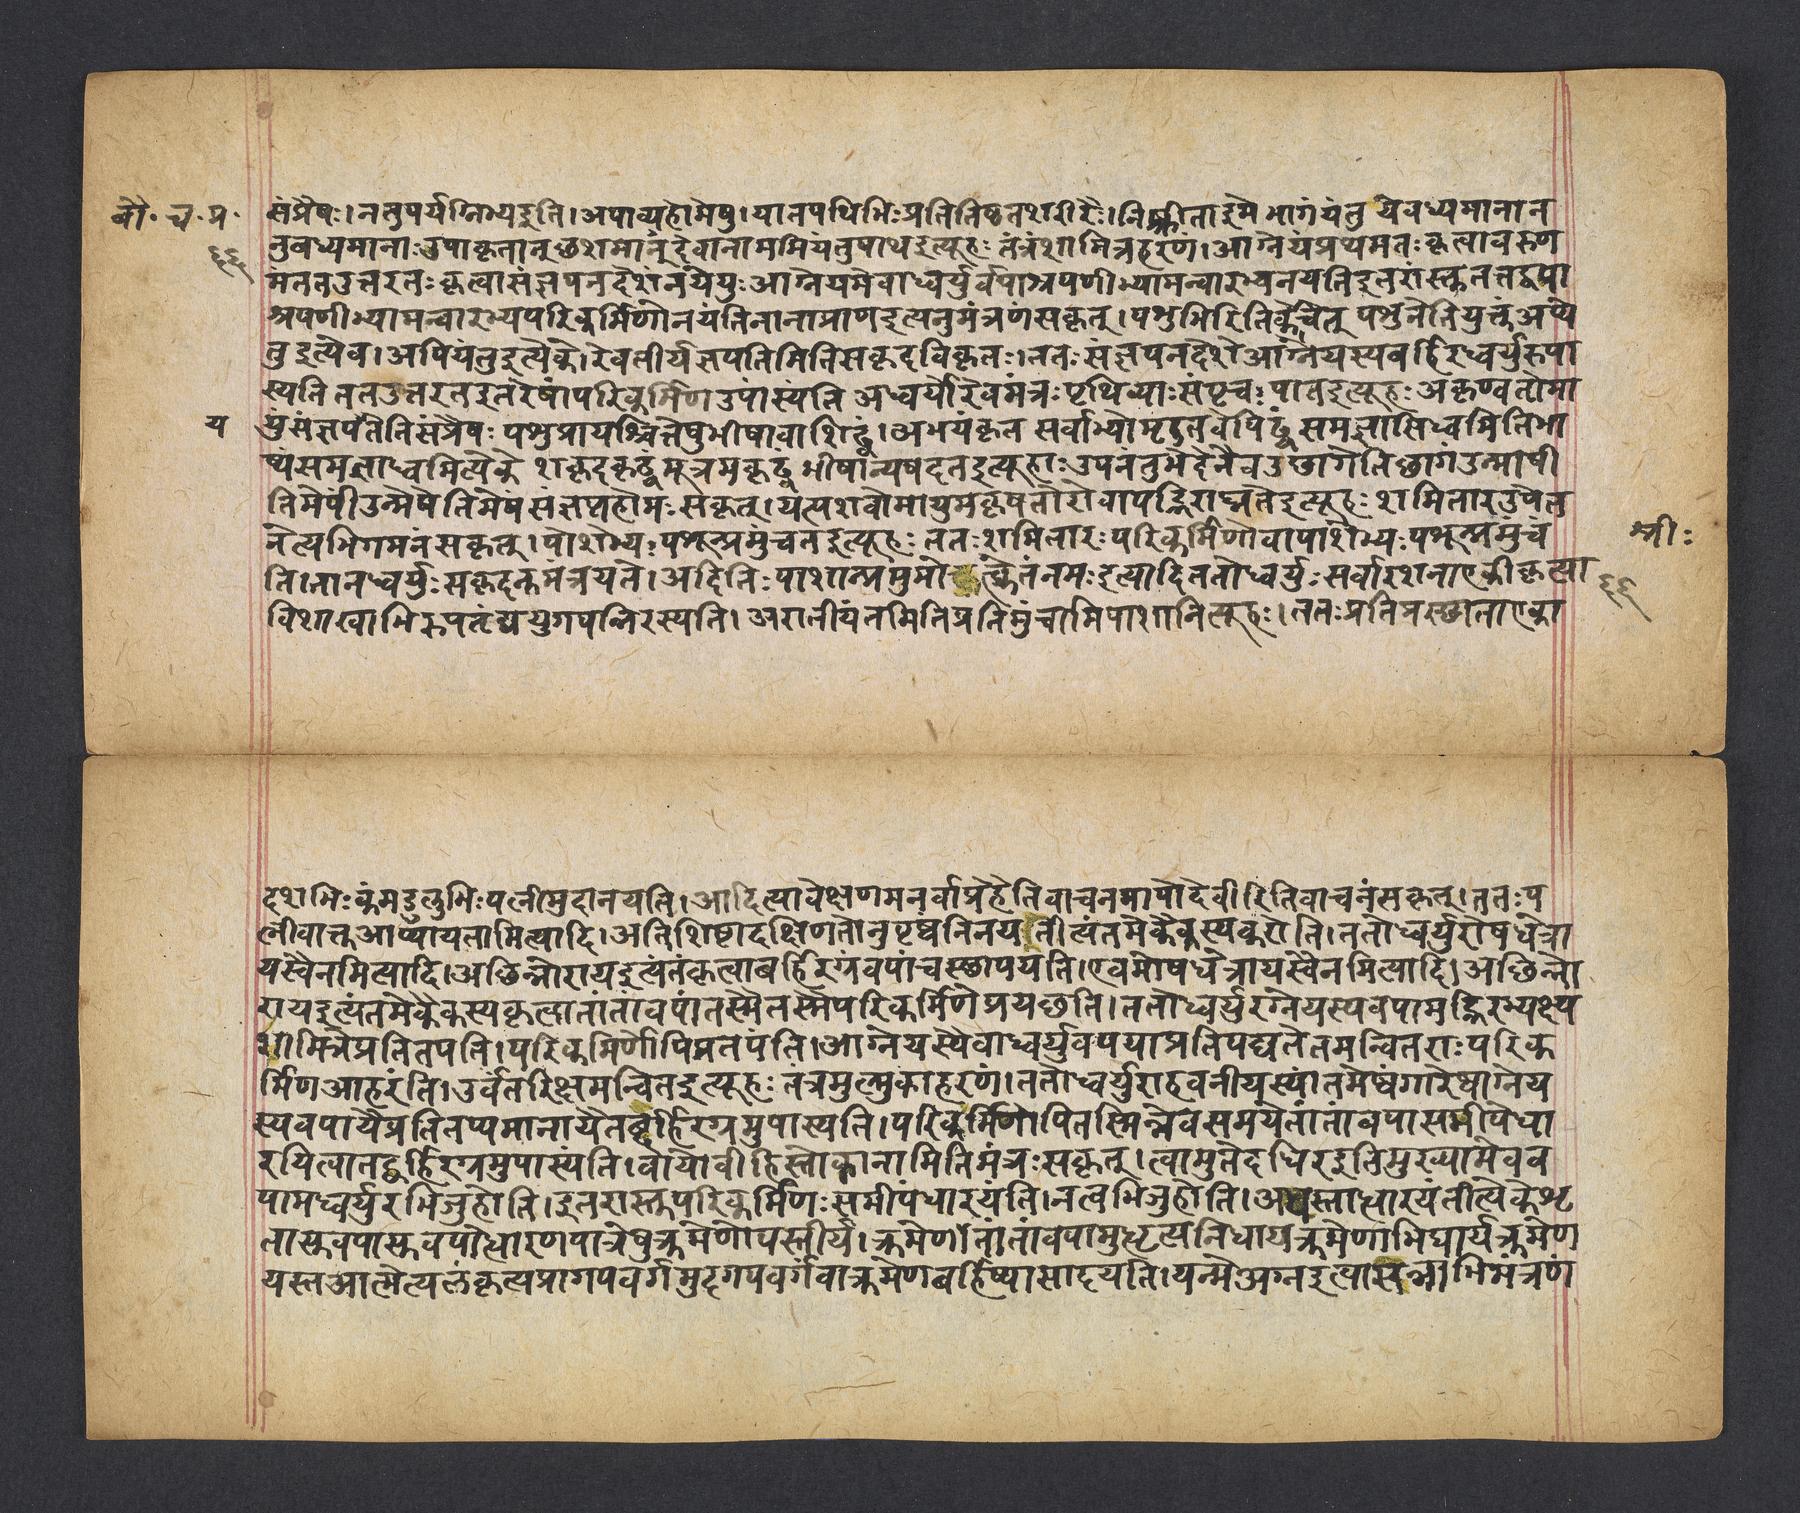 बौ. च. प्र.
६६
संप्रैषः। न तु पर्यग्निभ्य इति। अपाव्यहोमेषु। यातपथिभिः प्रतितिष्ठतशरीरैः। निष्क्रीता इमे भागं यंतु ये वध्यमानान
नुबध्यमानाः उपाकृतान् छशमानं देवानामभियंतु पाथ इत्यूहः तंत्रंशामित्रहरणं। आग्नेयं प्रथमतः कृत्वा वरुण
मतत उत्तरतः कृत्वा संज्ञपनदेशं नयेयुः आग्नेयमेवाध्वर्युर्वपाश्रपणीभ्यामन्वारभ्य नयति इतरांस्तु तत्तद्वपा
श्रपणीभ्यामन्वारभ्य परिकर्मिणो नयंति नानाप्राण इत्यनुमंत्रणं सकृत्। पशुभिरिति चेत् पशुनेति युक्तं अप्ये
तु इत्येव। अपियंतु इत्येके। रेवतीर्यज्ञपतिमिति सकृदविकृतः। ततः संज्ञपनदेशे आग्नेयस्य बर्हिरध्वर्युरुपा
स्यति तत उत्तरत इतरेषां परिकर्मिण उपास्यंति अध्वर्योरेव मंत्रः पृथिव्याः संपृचः पात इत्यूहः अकृण्वतोमा
य
युंसंज्ञपतेति संप्रैषः पशुप्रायश्चित्तेषु भीषावाशिढ्वं। अभयंकृत सर्वाभ्यो मृडत वेपिढ्वं समज्ञासिध्वमिति भा
ष्यं समज्ञाध्वमित्येके शकृदकृढ्वं मूत्रमकृढ्वं भीषान्यषदत इत्यूहाः उपनंतुभेदेनैव उच्छागेति छागं उन्मेषी
ति मेषीं उन्मेषेति मेषं संज्ञप्तहोमः सकृत्। यत्पशवो मायुमकृषतोरो वा पद्भिराघ्नते इत्यूहः शमितार उपेत
नेत्यभिगमनं सकृत्। पाशेभ्यः पशून्प्रमुंचत इत्यूहः ततः शमितारः परिकर्मिणो वा पाशेभ्यः पशून्प्रमुंच
श्रीः
ति। तानध्वर्युः सकृदनुमंत्रयते। अदितिः पाशान्प्रमुमोक्त्वेतंनमः इत्यादि ततोध्वर्युः सर्वा रशना एकीकृत्या
६६
विशाखाभिरुपतृंद्य युगपन्निरस्यति। अरातीयंतमिति प्रतिमुंचामि पाशानित्यूहः। ततः प्रतिप्रस्थाता एका
दशभिः कमंडलुभिः पत्नीमुदानयति। आदित्यावेक्षणमनर्वाप्रेहेति वाचनमापोदेवीरिति वाचनं सकृत्। ततः प
त्नी वाक्त आप्यायतामित्यादि। अतिशिष्टा दक्षिणतोनुपृष्ठं निनय तीत्यंतमेकैकस्य करोति। ततोध्वर्युरोषधेत्रा
यस्वैनमित्यादि। अछिन्नोराय इत्यंतं कृत्वा बर्हिरग्रं वपां च स्थापयति। एवमोषधेत्रायस्वैनमित्यादि। अछिन्नो
राय इत्यंतमेकैकस्य कृत्वा तां तां वपां तस्मै तस्मै परिकर्मिणे प्रयछति। ततोध्वर्युरग्नेयस्य वपामद्भिरभ्युक्ष्य
शामित्रे प्रतितपति। परिकर्मिणोपि प्रतपंति। आग्नेयस्यैवाध्वर्युर्वपया प्रतिपद्यते तमन्वितराः परिक
र्मिण आहरंति। उर्वंतरिक्षमन्वित इत्यूहः तंत्रमुल्मुकाहरणं। ततोध्वर्युराहवनीयस्यांतमेष्वंगारेष्वाग्नेय
स्य वपायै प्रतितप्यमानायै तद्बर्हिरग्रमुपास्यति। परिकर्मिणोपि तस्मिन्नेव समये तां तां वपा समीपे धा
रयित्वा तद्बर्हिरग्रमुपास्यंति। वायोवीहिस्तोकानामिति मंत्रः सकृत्। त्वामुतेदधिर इति मुख्यामेव व
पामध्वर्युरभिजुहोति। इतरास्तु परिकर्मिणः समीपं धारयंति। नत्वभिजुहोति। अधस्ताधारयंतीत्येके शृ
तास्तु वपास्तु वपोद्धारणपात्रेषु क्रमेणोपस्तीर्य। क्रमेण तां तां वपामुद्धृत्य निधाय क्रमेणाभिघार्य क्रमेण
यस्त आत्मेत्यलंकृत्य प्रागपवर्गमुदगपवर्गं वा क्रमेण बर्हिष्यासादयति। यन्मे अग्न इत्यासन्नाभिमंत्रणं